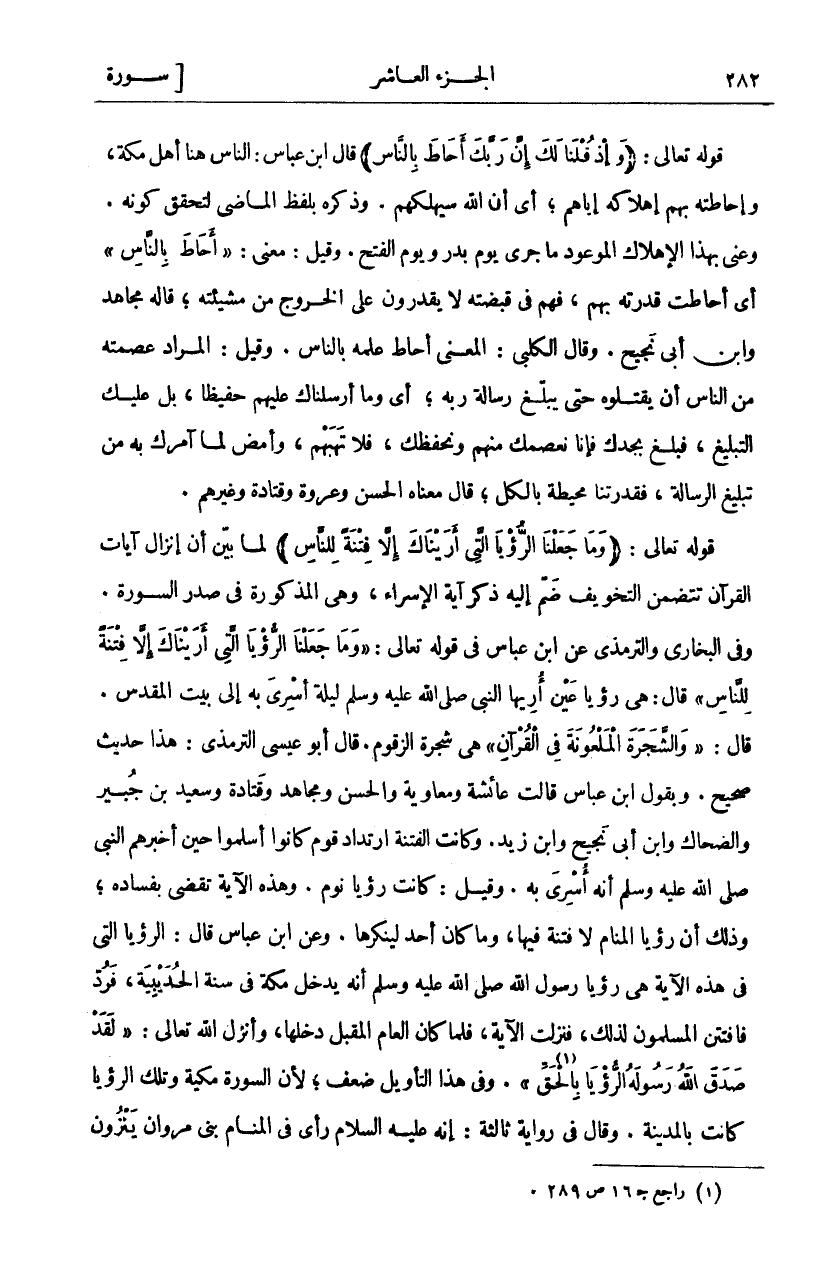 ٢٨٢ الجزء العاشر [ سورة
قوله تعالى : ﴿وَإِذْ قُلْنَا لَكَ إِنَّ رَبَّكَ أَحَاطَ بِالنَّاسِ﴾ قال ابن عباس : الناس هنا أهل مكة ،
وإحاطته بهم إهلاكه إياهم ؛ أى أن الله سيهلكهم . وذكره بلفظ الماضى لتحقق كونه .
وعنى بهذا الإهلاك الموعود ما جرى يوم بدر و يوم الفتح . وقيل : معنى : « أَحَاطَ بِالنَّاسِ »
أى أحاطت قدرته بهم ، فهم فى قبضته لا يقدرون على الخروج من مشيئته ؛ قاله مجاهد
وابن أبى نَجيح . وقال الكلبى : المعنى أحاط علمه بالناس . وقيل : المراد عصمته
من الناس أن يقتلوه حتى يبلّغ رسالة ربه ؛ أى وما أرسلناك عليهم حفيظا ، بل عليك
التبليغ ، فبلغ بجدك فإنا نعصمك منهم ونحفظك ، فلا تَهَبْهم ، وأمض لما آمرك به من
تبليغ الرسالة ، فقدرتنا محيطة بالكل ؛ قال معناه الحسن وعروة وقتادة وغيرهم .
قوله تعالى : ﴿وَمَا جَعَلْنَا الرُّؤْيَا الَّتِي أَرَيْنَاكَ إِلَّا فِتْنَةً لِلنَّاسِ﴾ لما بيّن أن إنزال آيات
القرآن تتضمن التخويف ضَمّ إليه ذكر آية الإسراء ، وهى المذكورة فى صدر السورة .
وفى البخارى والترمذى عن ابن عباس فى قوله تعالى : «وَمَا جَعَلْنَا الرُّؤْيَا الَّتِي أَرَيْنَاكَ إِلَّا فِتْنَةً
لِلنَّاسِ» قال : هى رؤيا عَيْن أُرِيها النبى صلى الله عليه وسلم ليلة أسْرِىَ به إلى بيت المقدس .
قال : « وَالشَّجَرَةَ الْمَلْعُونَةَ فِى الْقُرْآنِ» هى شجرة الزقوم . قال أبو عيسى الترمذى : هذا حديث
صحيح . وبقول ابن عباس قالت عائشة ومعاوية والحسن ومجاهد وقَتادة وسعيد بن جُبير
والضحاك وابن أبى نَجيح وابن زيد . وكانت الفتنة ارتداد قوم كانوا أسلموا حين أخبرهم النبى
صلى الله عليه وسلم أنه أُسْرِىَ به . وقيل : كانت رؤيا نوم . وهذه الآية تقضى بفساده ؛
وذلك أن رؤيا المنام لا فتنة فيها ، وما كان أحد لينكرها . وعن ابن عباس قال : الرؤيا التى
فى هذه الآية هى رؤيا رسول الله صلى الله عليه وسلم أنه يدخل مكة فى سنة الحُدَيْبِيَة ، فَرُدّ
فافتتن المسلمون لذلك ، فنزلت الآية ، فلما كان العام المقبل دخلها ، وأنزل الله تعالى : « لَقَدْ
صَدَقَ اللهُ رَسُولَهُ الرُّؤْيَا بِالْحَقِّ (١) » . وفى هذا التأويل ضعف ؛ لأن السورة مكية وتلك الرؤيا
كانت بالمدينة . وقال فى رواية ثالثة : إنه عليه السلام رأى فى المنام بنى مروان يَنْزُون
(١) راجع جـ ١٦ ص ٢٨٩ .